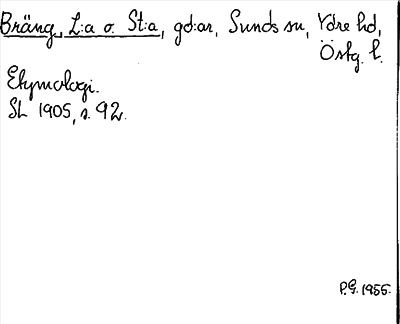 Bräng, L:a o. St:a, gd:ar, Sunds sn, Ydre hd,
Östg. l.
Etymologi.
SL 1905, s. 92.
P.G. 1955.